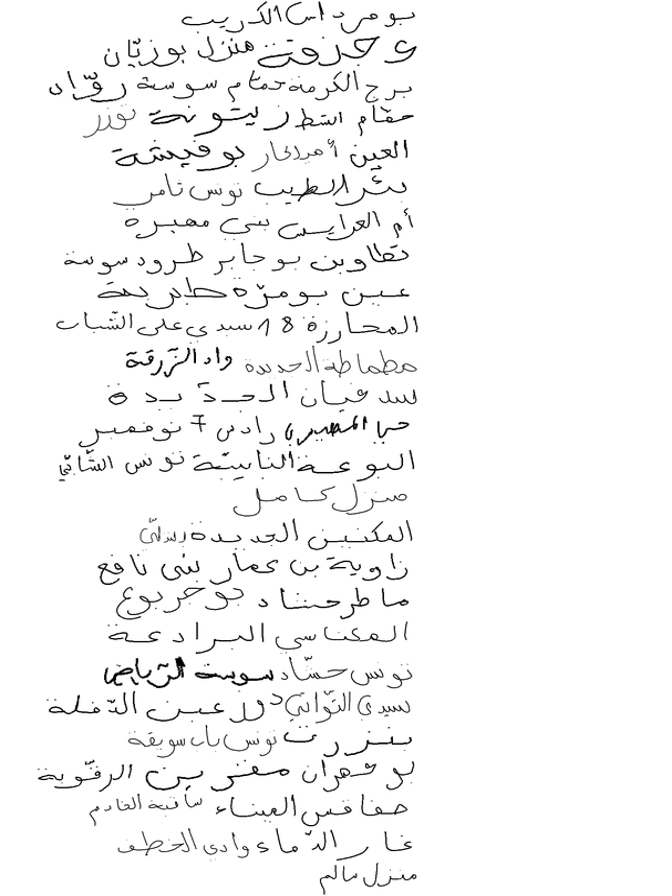 بومرداس الكريب
وجزقة منزل بوزيّان
برج الكرمة حمّام سوسة روّاد
حمّام الشط زيتونة توزر
العين أميلكار بوفيشة
بئر الطيب تونس ثامر
أم العرايس بني مهيرة
تطاوين بوجابر طرود سوسة
عين بومرّة طبربة
المحارزة 18 سيدي علي الشباب
مطماطة الجديدة واد الزّرقة
سفيان الجديدة
رادس 7 نوفمبر
النابيّة تونس الشّابّي
منزل كامل
المكنين الجديدة
زاوية بن عمار بني نافع
ماطر حشاد بوجربوع
المكناسي البرادعة
تونس حشّاد سوسة الرّياض
سيدي التّواتي دوز عين الدّفلة
بنزرت تونس باب سويقة
بومهران مقرين الرقّوبة
صفاقس الميناء ساقية الخادم
غار الدّماء وادي الخطف
منزل سالم